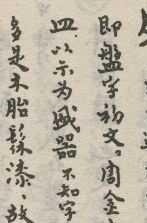 即盤字初文。周金
皿以示为盛器不知字
多是木胎髹漆、故